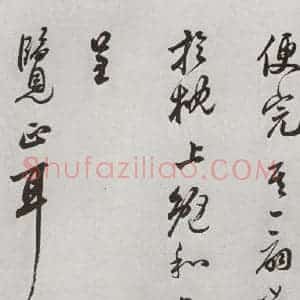 便完一扇
於枕上勉和
呈
覽正耳
Shufaziliao.COM